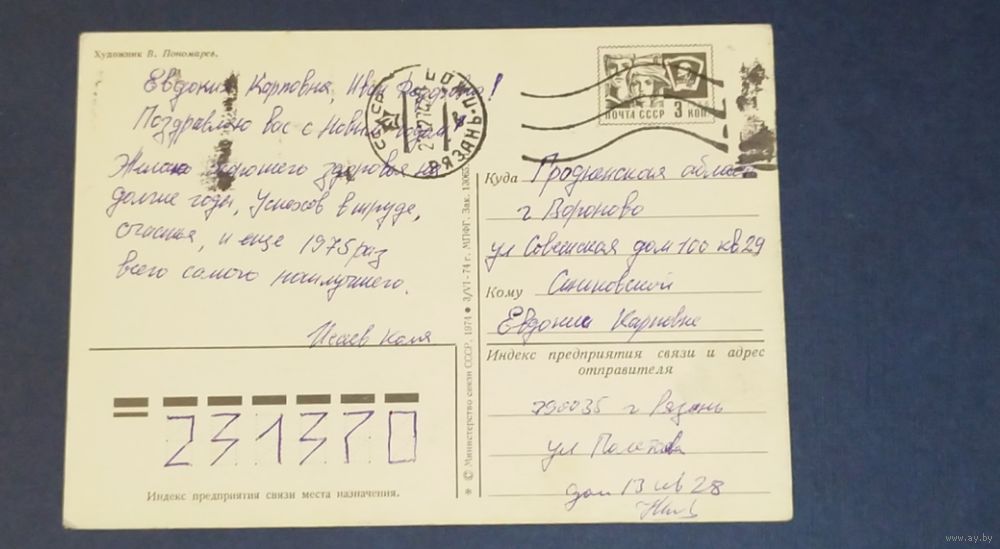 Художник В. Пономарев.
Евдокия Карповна, Иван
Поздравляю вас с Новым годом!
Желаю хорошего здоровья на
долгие годы, Успехов в труде,
счастья, и еще 1975 раз
всего самого наилучшего.
Исаев Коля
СССР
РЯЗАНЬ
ПОЧТА СССР 3 КОП
Куда Гродненская область
г Вороново
ул Советская дом 100 кв 29
Кому Синиковской
Евдокии Карповне
Индекс предприятия связи и адрес
отправителя
390035 г Рязань
ул Полетаева
дом 13 кв 28
231370
Индекс предприятия связи места назначения.
* © Министерство связи СССР, 1974 • 3/VI-74 г. МПФГ. Зак. 13065
www.ay.by